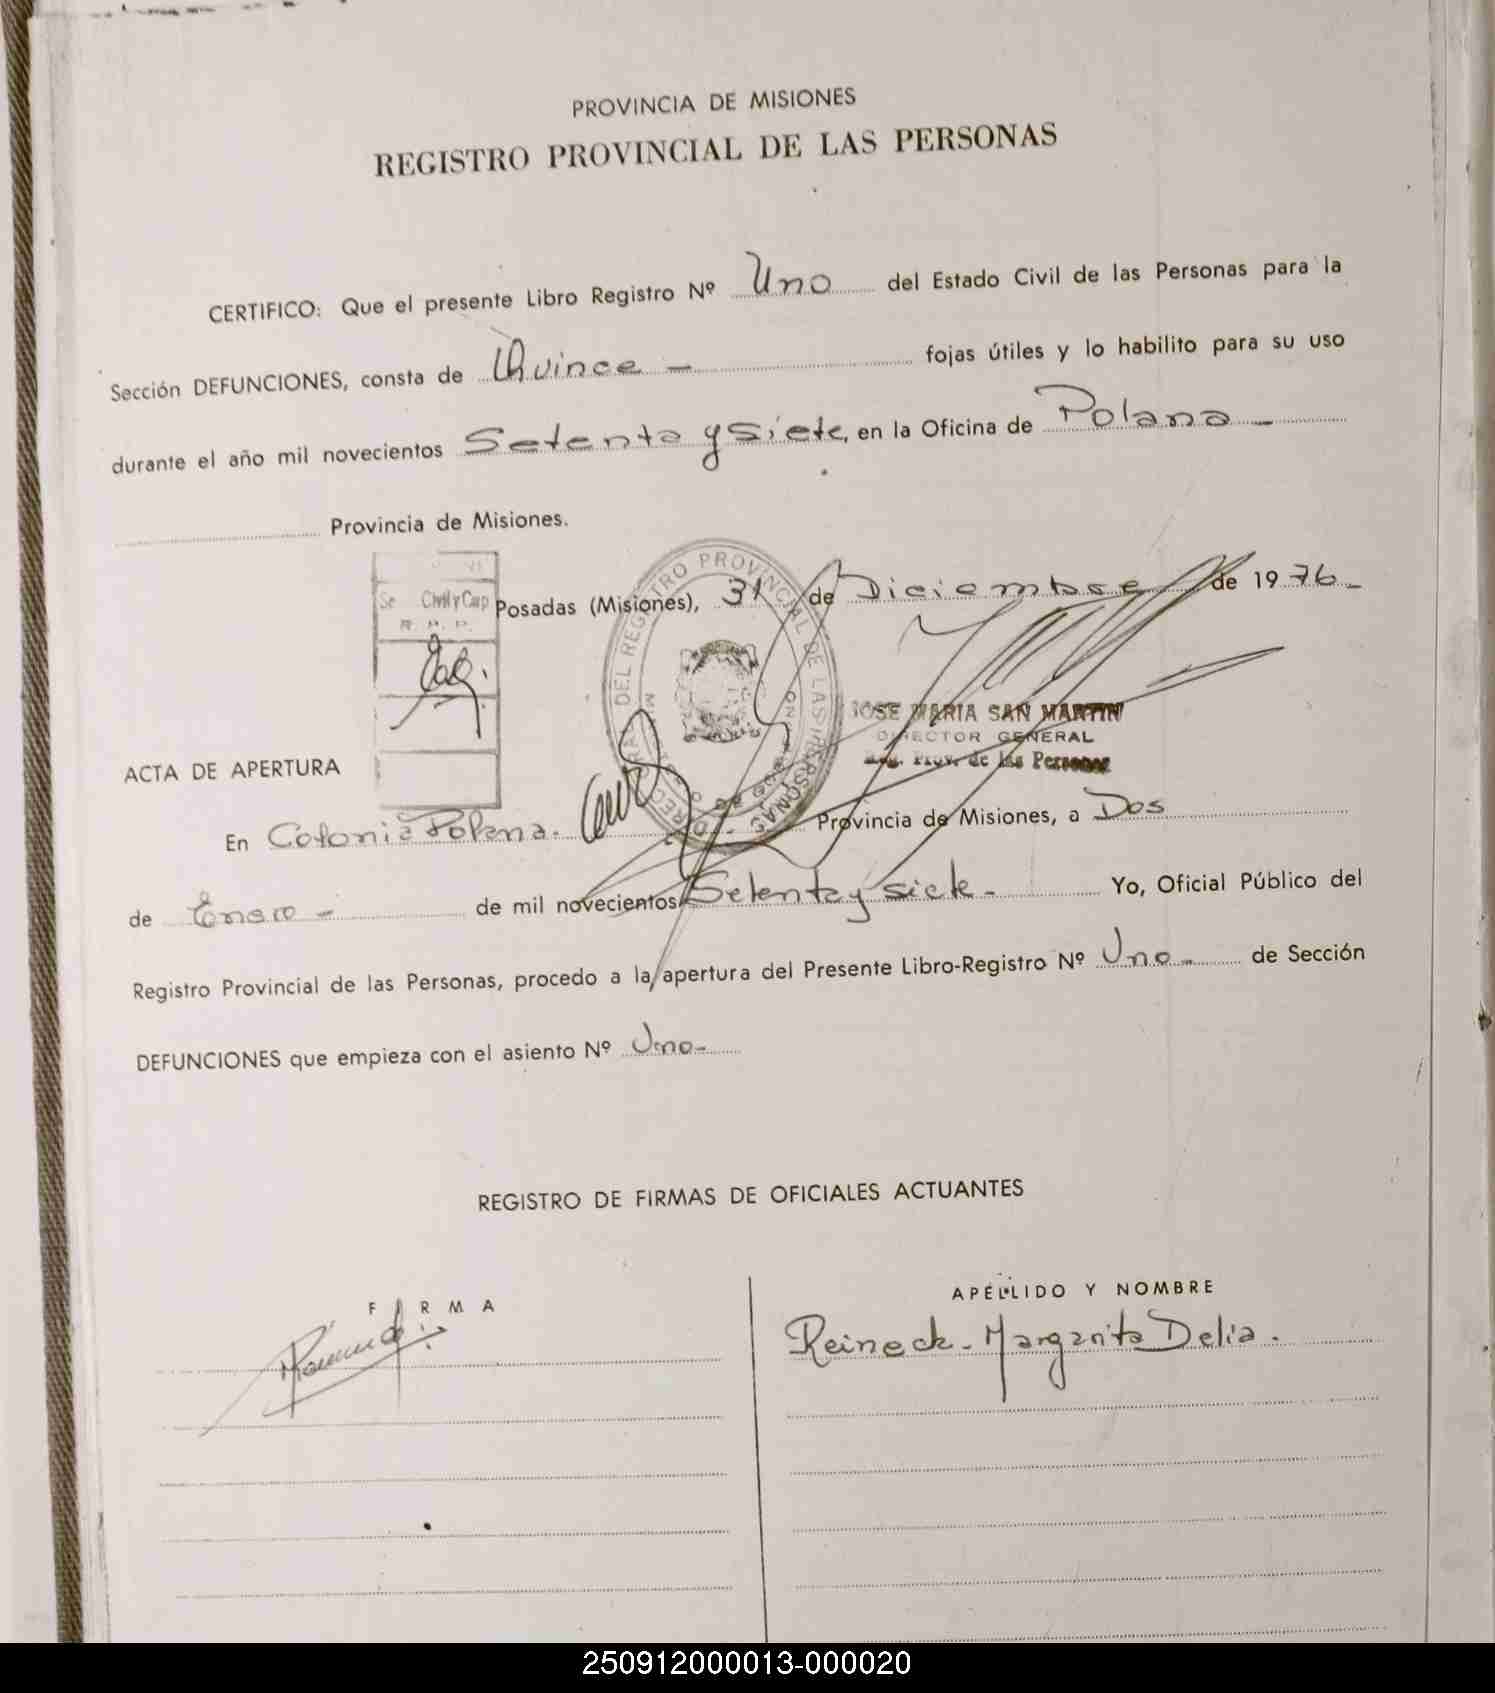 PROVINCIA DE MISIONES
REGISTRO PROVINCIAL DE LAS PERSONAS
CERTIFICO: Que el presente Libro Registro Nº Uno del Estado Civil de las Personas para la
Sección DEFUNCIONES, consta de Quince - fojas útiles y lo habilito para su uso
durante el año mil novecientos Setenta y Siete, en la Oficina de Polana -
Provincia de Misiones.
Civil y Cap
Posadas (Misiones), 31 de Diciembre de 1976-
JOSE MARIA SAN MARTIN
DIRECTOR GENERAL
Reg. Prov. de las Personas
ACTA DE APERTURA
En Colonia Polana. Provincia de Misiones, a Dos
de Enero - de mil novecientos Setenta y siete - Yo, Oficial Público del
Registro Provincial de las Personas, procedo a la apertura del Presente Libro-Registro Nº Uno - de Sección
DEFUNCIONES que empieza con el asiento Nº Uno-
REGISTRO DE FIRMAS DE OFICIALES ACTUANTES
FIRMA
APELLIDO Y NOMBRE
Reineck - Margarita Delia.
250912000013-000020